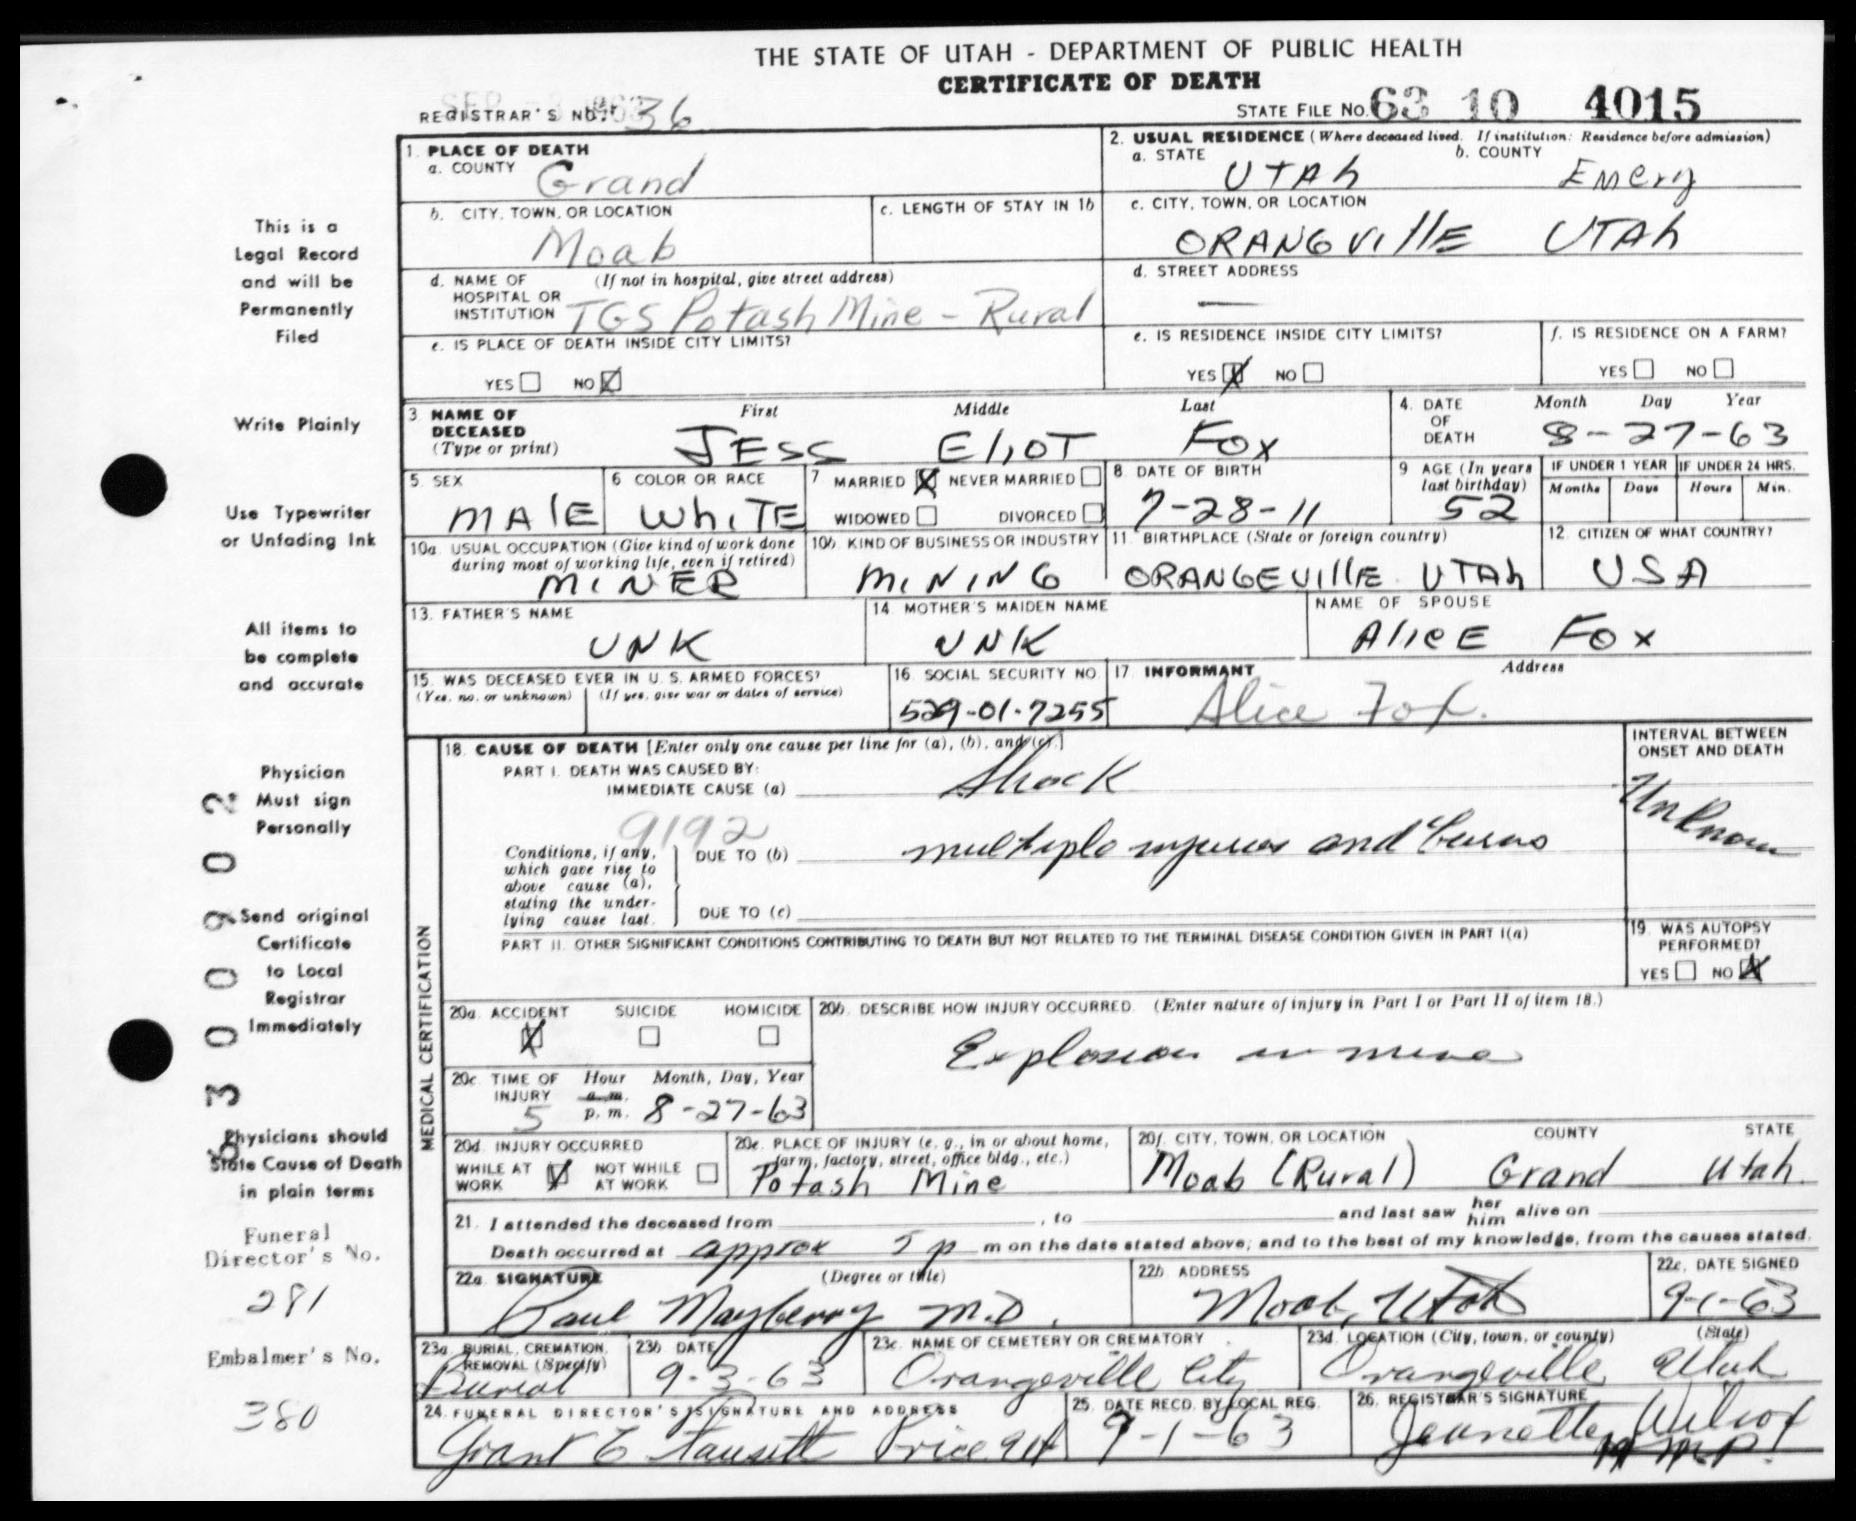 THE STATE OF UTAH - DEPARTMENT OF PUBLIC HEALTH
CERTIFICATE OF DEATH
REGISTRAR'S NO. 36
STATE FILE NO. 63 10 4015
1. PLACE OF DEATH
a. COUNTY Grand
2. USUAL RESIDENCE (Where deceased lived. If institution: Residence before admission)
a. STATE UTAh b. COUNTY Emery
b. CITY, TOWN, OR LOCATION Moab
c. LENGTH OF STAY IN 1b
c. CITY, TOWN, OR LOCATION ORANGVIllE UTAh
d. NAME OF HOSPITAL OR INSTITUTION (If not in hospital, give street address) TGS Potash Mine - Rural
d. STREET ADDRESS —
e. IS PLACE OF DEATH INSIDE CITY LIMITS?
YES NO X
e. IS RESIDENCE INSIDE CITY LIMITS?
YES X NO
f. IS RESIDENCE ON A FARM?
YES NO
3. NAME OF DECEASED (Type or print) First Middle Last
JESS EliOT FOX
4. DATE OF DEATH Month Day Year
8-27-63
5. SEX MAlE
6 COLOR OR RACE WhiTE
7 MARRIED X NEVER MARRIED
WIDOWED DIVORCED
8 DATE OF BIRTH 7-28-11
9 AGE (In years last birthday) 52
IF UNDER 1 YEAR Months Days
IF UNDER 24 HRS. Hours Min.
10a. USUAL OCCUPATION (Give kind of work done during most of working life, even if retired) MINER
10b. KIND OF BUSINESS OR INDUSTRY MINING
11. BIRTHPLACE (State or foreign country) ORANGEVIllE UTAh
12 CITIZEN OF WHAT COUNTRY? USA
13. FATHER'S NAME UNK
14 MOTHER'S MAIDEN NAME UNK
NAME OF SPOUSE AlicE FOX
15. WAS DECEASED EVER IN U. S. ARMED FORCES?
(Yes, no, or unknown) (If yes, give war or dates of service)
16. SOCIAL SECURITY NO. 529-01-7255
17 INFORMANT Address
Alice Fox.
MEDICAL CERTIFICATION
18. CAUSE OF DEATH [Enter only one cause per line for (a), (b), and (c).]
INTERVAL BETWEEN ONSET AND DEATH
PART I. DEATH WAS CAUSED BY:
IMMEDIATE CAUSE (a) Shock
Unknown
9192
Conditions, if any, which gave rise to above cause (a), stating the underlying cause last.
DUE TO (b) multiple injuries and burns
DUE TO (c)
PART II. OTHER SIGNIFICANT CONDITIONS CONTRIBUTING TO DEATH BUT NOT RELATED TO THE TERMINAL DISEASE CONDITION GIVEN IN PART I(a)
19. WAS AUTOPSY PERFORMED?
YES NO X
20a. ACCIDENT X SUICIDE HOMICIDE
20b. DESCRIBE HOW INJURY OCCURRED. (Enter nature of injury in Part I or Part II of item 18.)
Explosion in mine
20c. TIME OF INJURY Hour Month, Day, Year
5 a. m. p. m. 8-27-63
20d. INJURY OCCURRED
WHILE AT WORK X NOT WHILE AT WORK
20e. PLACE OF INJURY (e. g., in or about home, farm, factory, street, office bldg., etc.)
Potash Mine
20f. CITY, TOWN, OR LOCATION COUNTY STATE
Moab (Rural) Grand Utah.
21. I attended the deceased from , to and last saw her him alive on
Death occurred at approx 5 p m on the date stated above; and to the best of my knowledge, from the causes stated.
22a. SIGNATURE (Degree or title)
Paul Mayberry M.D.
22b. ADDRESS Moab, Utah
22c. DATE SIGNED 9-1-63
23a. BURIAL, CREMATION, REMOVAL (Specify) Burial
23b. DATE 9-3-63
23c. NAME OF CEMETERY OR CREMATORY Orangeville City
23d. LOCATION (City, town, or county) (State) Orangeville Utah
24. FUNERAL DIRECTOR'S SIGNATURE AND ADDRESS
Grant C Fausett Price Ut
25. DATE RECD. BY LOCAL REG. 9-1-63
26. REGISTRAR'S SIGNATURE
Jeannette Wilcox
This is a
Legal Record
and will be
Permanently
Filed
Write Plainly
Use Typewriter
or Unfading Ink
All items to
be complete
and accurate
Physician
Must sign
Personally
Send original
Certificate
to Local
Registrar
Immediately
Physicians should
State Cause of Death
in plain terms
Funeral
Director's No.
281
Embalmer's No.
380
63 0 0 9 0 2